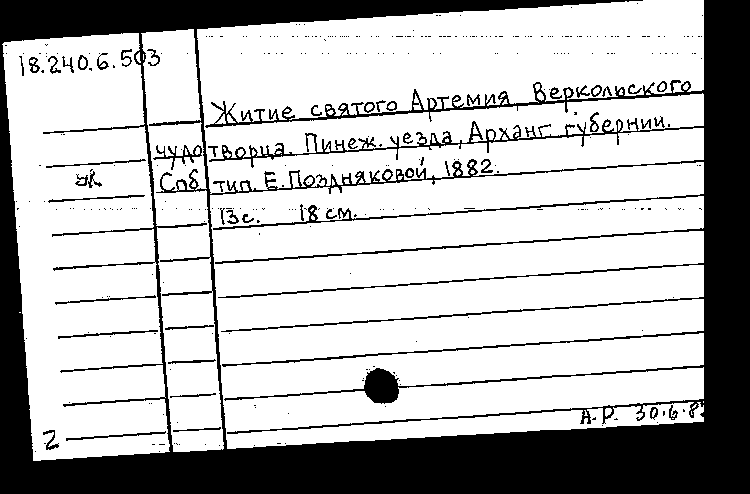 18.240.6.503
Житие святого Артемия, Веркольского
чудотворца. Пинеж. уезда, Арханг. губернии.
Спб тип. Е. Поздняковой, 1882.
13 с. 18 см.
А.Р. 30.6.8
2